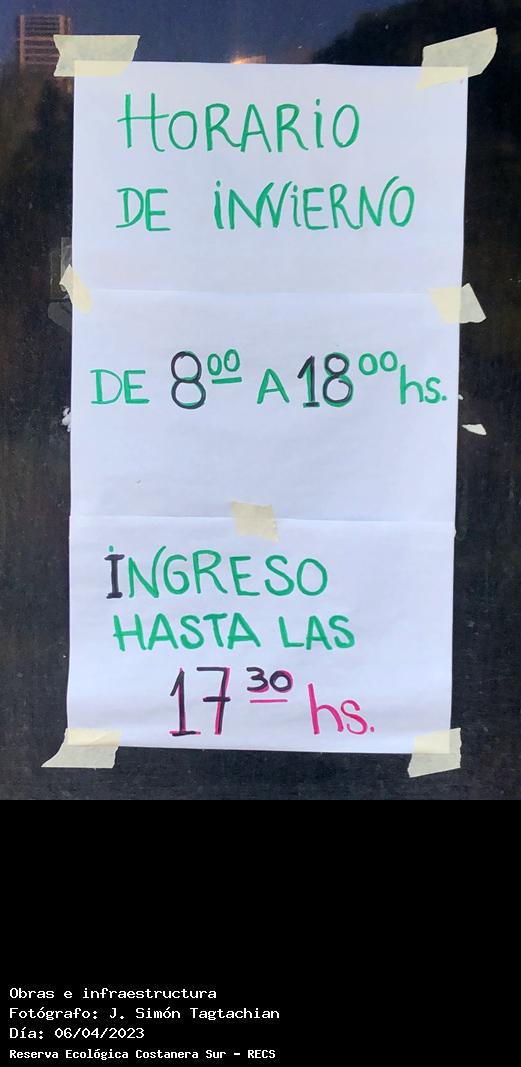 HORARiO
DE iNViERNO
DE 8⁰⁰ A 18⁰⁰ hs.
iNGRESO
HASTA LAS
17³⁰ hs.
Obras e infraestructura
Fotógrafo: J. Simón Tagtachian
Día: 06/04/2023
Reserva Ecológica Costanera Sur - RECS